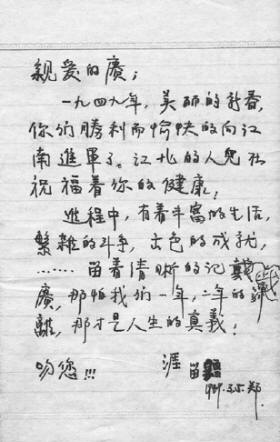 親爱的廣；
一九四九年，美丽的新春，
你们勝利而愉快的向江
南進軍了。江北的人兒在
祝福着你的健康；
進程中，有着丰富的生活，
繁雜的斗争，出色的成就，
……留着清晰的记载
廣，那怕我们一年，二年的
離，那才是人生的真義！
吻您!!! 涯
3.5.郑